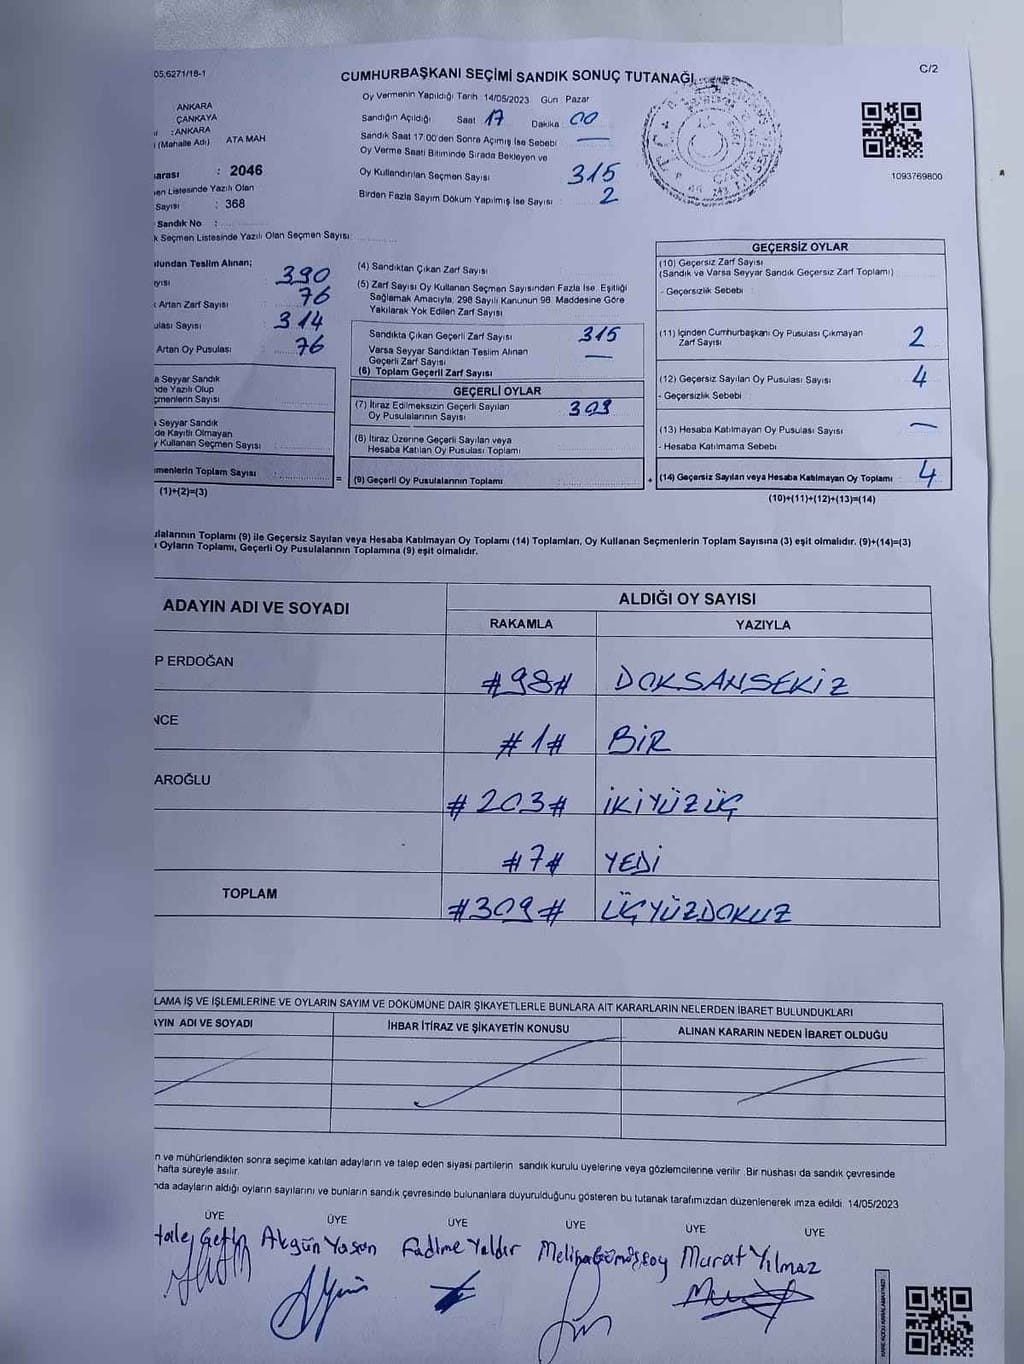 05,6271/18-1
C/2
CUMHURBAŞKANI SEÇİMİ SANDIK SONUÇ TUTANAĞI
ANKARA
ÇANKAYA
: ANKARA
(Mahalle Adı) ATA MAH
arası : 2046
en Listesinde Yazılı Olan
Sayısı : 368
Sandık No :
k Seçmen Listesinde Yazılı Olan Seçmen Sayısı:
Oy Vermenin Yapıldığı Tarih 14/05/2023 Gün Pazar
Sandığın Açıldığı Saat 17 Dakika 00
Sandık Saat 17:00'den Sonra Açımış İse Sebebi —
Oy Verme Saati Bitiminde Sırada Bekleyen ve
Oy Kullandırılan Seçmen Sayısı 315
Birden Fazla Sayım Döküm Yapılmış İse Sayısı 2
1093769800
ulundan Teslim Alınan;
yısı 390
Artan Zarf Sayısı 76
ulası Sayısı 314
Artan Oy Pusulası 76
a Seyyar Sandık
nde Yazılı Olup
çmenlerin Sayısı
a Seyyar Sandık
de Kayıtlı Olmayan
y Kullanan Seçmen Sayısı
menlerin Toplam Sayısı
(1)+(2)=(3)
(4) Sandıktan Çıkan Zarf Sayısı
(5) Zarf Sayısı Oy Kullanan Seçmen Sayısından Fazla İse, Eşitliği
Sağlamak Amacıyla, 298 Sayılı Kanunun 98. Maddesine Göre
Yakılarak Yok Edilen Zarf Sayısı
Sandıkta Çıkan Geçerli Zarf Sayısı 315
Varsa Seyyar Sandıktan Teslim Alınan
Geçerli Zarf Sayısı —
(6) Toplam Geçerli Zarf Sayısı
GEÇERLİ OYLAR
(7) İtiraz Edilmeksizin Geçerli Sayılan
Oy Pusulalarının Sayısı
(8) İtiraz Üzerine Geçerli Sayılan veya
Hesaba Katılan Oy Pusulası Toplamı
= (9) Geçerli Oy Pusulalarının Toplamı +
GEÇERSİZ OYLAR
(10) Geçersiz Zarf Sayısı
(Sandık ve Varsa Seyyar Sandık Geçersiz Zarf Toplamı)
- Geçersizlik Sebebi
(11) İçinden Cumhurbaşkanı Oy Pusulası Çıkmayan
Zarf Sayısı 2
(12) Geçersiz Sayılan Oy Pusulası Sayısı 4
- Geçersizlik Sebebi
(13) Hesaba Katılmayan Oy Pusulası Sayısı —
- Hesaba Katılmama Sebebi
(14) Geçersiz Sayılan veya Hesaba Katılmayan Oy Toplamı 4
(10)+(11)+(12)+(13)=(14)
ulalarının Toplamı (9) ile Geçersiz Sayılan veya Hesaba Katılmayan Oy Toplamı (14) Toplamları, Oy Kullanan Seçmenlerin Toplam Sayısına (3) eşit olmalıdır. (9)+(14)=(3)
Oyların Toplamı, Geçerli Oy Pusulalarının Toplamına (9) eşit olmalıdır.
ADAYIN ADI VE SOYADI
ALDIĞI OY SAYISI
RAKAMLA YAZIYLA
P ERDOĞAN #98# DOKSANSEKİZ
NCE #1# BİR
AROĞLU #203# İKİYÜZÜÇ
#7# YEDİ
TOPLAM #309# ÜÇYÜZDOKUZ
LAMA İŞ VE İŞLEMLERİNE VE OYLARIN SAYIM VE DÖKÜMÜNE DAİR ŞİKAYETLERLE BUNLARA AİT KARARLARIN NELERDEN İBARET BULUNDUKLARI
AYIN ADI VE SOYADI İHBAR İTİRAZ VE ŞİKAYETİN KONUSU ALINAN KARARIN NEDEN İBARET OLDUĞU
n ve mühürlendikten sonra seçime katılan adayların ve talep eden siyasi partilerin sandık kurulu üyelerine veya gözlemcilerine verilir. Bir nüshası da sandık çevresinde
hafta süreyle asılır.
nda adayların aldığı oyların sayılarını ve bunların sandık çevresinde bulunanlara duyurulduğunu gösteren bu tutanak tarafımızdan düzenlenerek imza edildi. 14/05/2023
ÜYE ÜYE ÜYE ÜYE ÜYE ÜYE
Çetin Akgün Yasan Fadime Yaldır Meliha Gümüşsoy Murat Yılmaz